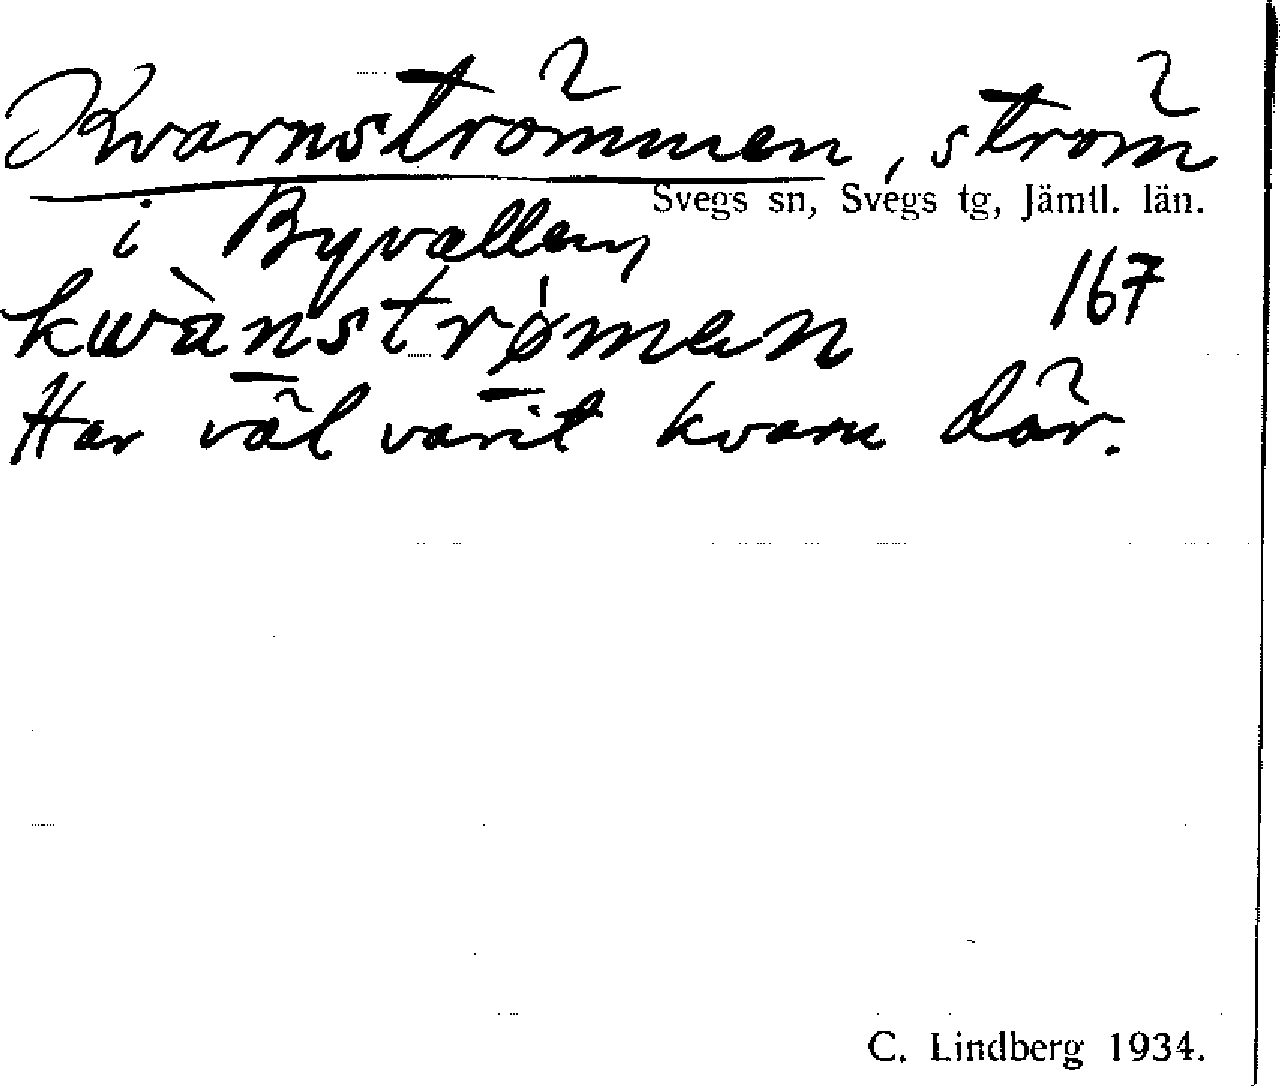 Kvarnströmmen, ström
Svegs sn, Svegs tg, Jämtl. län.
i Byvallen,
kwànstrømen
167
Har väl varit kvarn där.
C. Lindberg 1934.